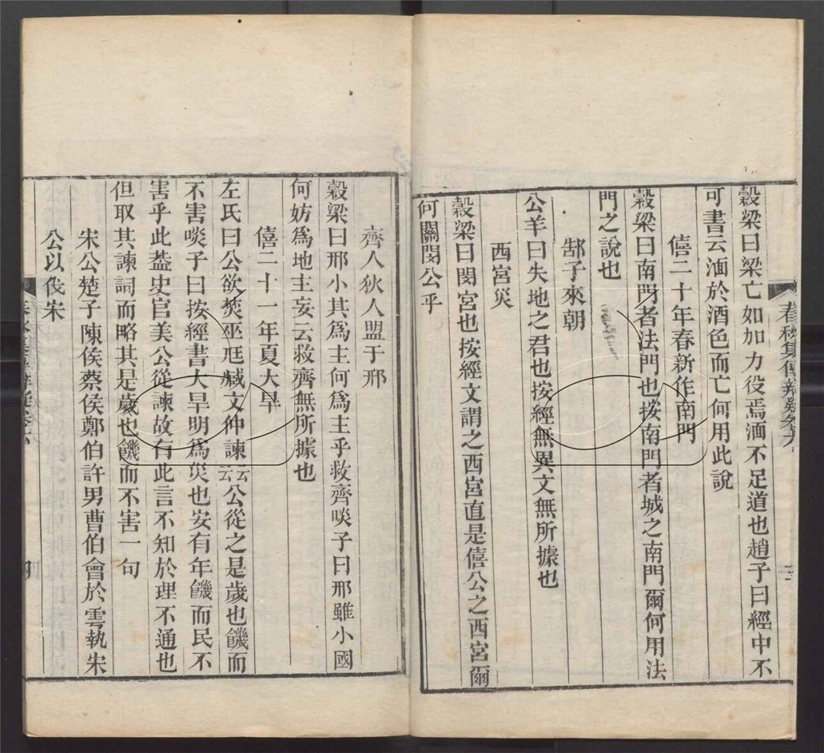 穀梁曰梁亡如加力役焉湎不足道也趙子曰經中不
可書云湎於酒色而亡何用此說
僖二十年春新作南門
穀梁曰南門者法門也按南門者城之南門爾何用法
門之說也
郜子來朝
公羊曰失地之君也按經無異文無所據也
西宮災
穀梁曰閔宮也按經文謂之西宮直是僖公之西宮爾
何關閔公乎
齊人狄人盟于邢
穀梁曰邢小其為主何為主乎救齊啖子曰邢雖小國
何妨為地主妄云救齊無所據也
僖二十一年夏大旱
左氏曰公欲焚巫尪臧文仲諫云云公從之是歲也饑而
不害啖子曰按經書大旱明為災也安有年饑而民不
害乎此葢史官美公從諫故有此言不知於理不通也
但取其諫詞而略其是歲也饑而不害一句
宋公楚子陳侯蔡侯鄭伯許男曹伯會於雩執宋
公以伐宋